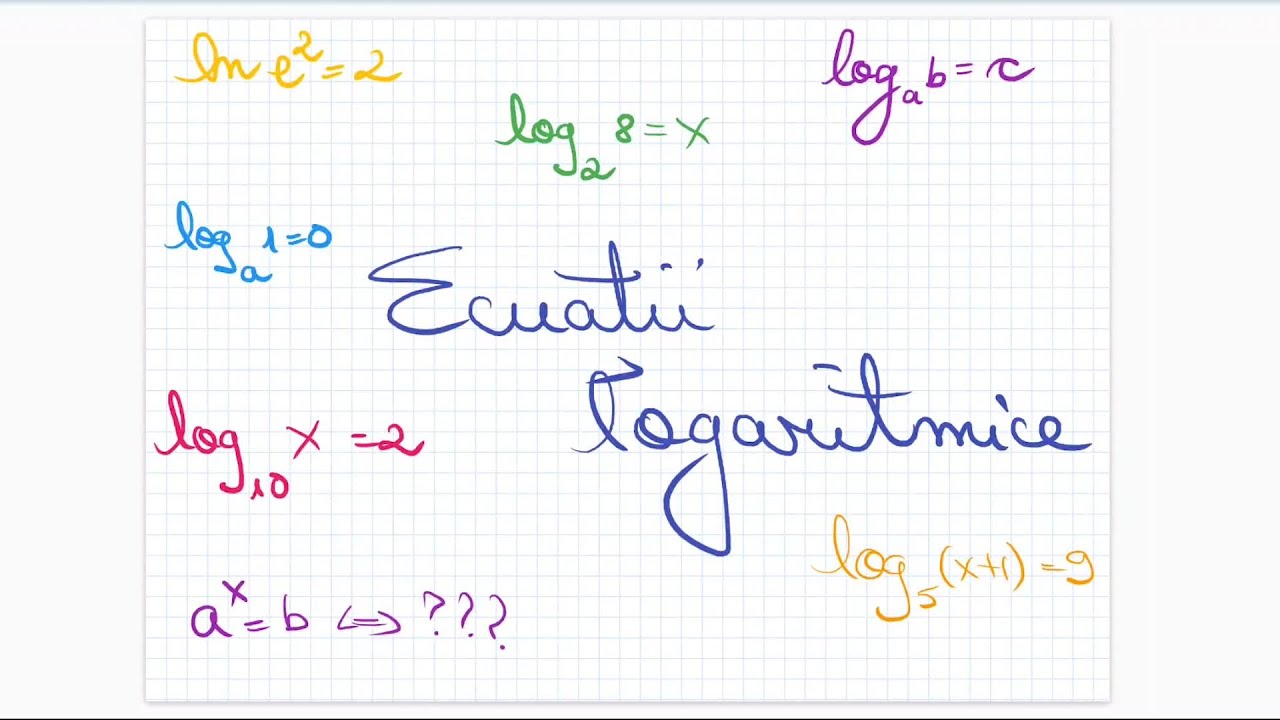 ln e² = 2
log_a b = c
log_2 8 = x
log_a 1 = 0
Ecuatii
logaritmice
log_10 x = 2
log_5 (x+1) = 9
a^x = b <=> ???